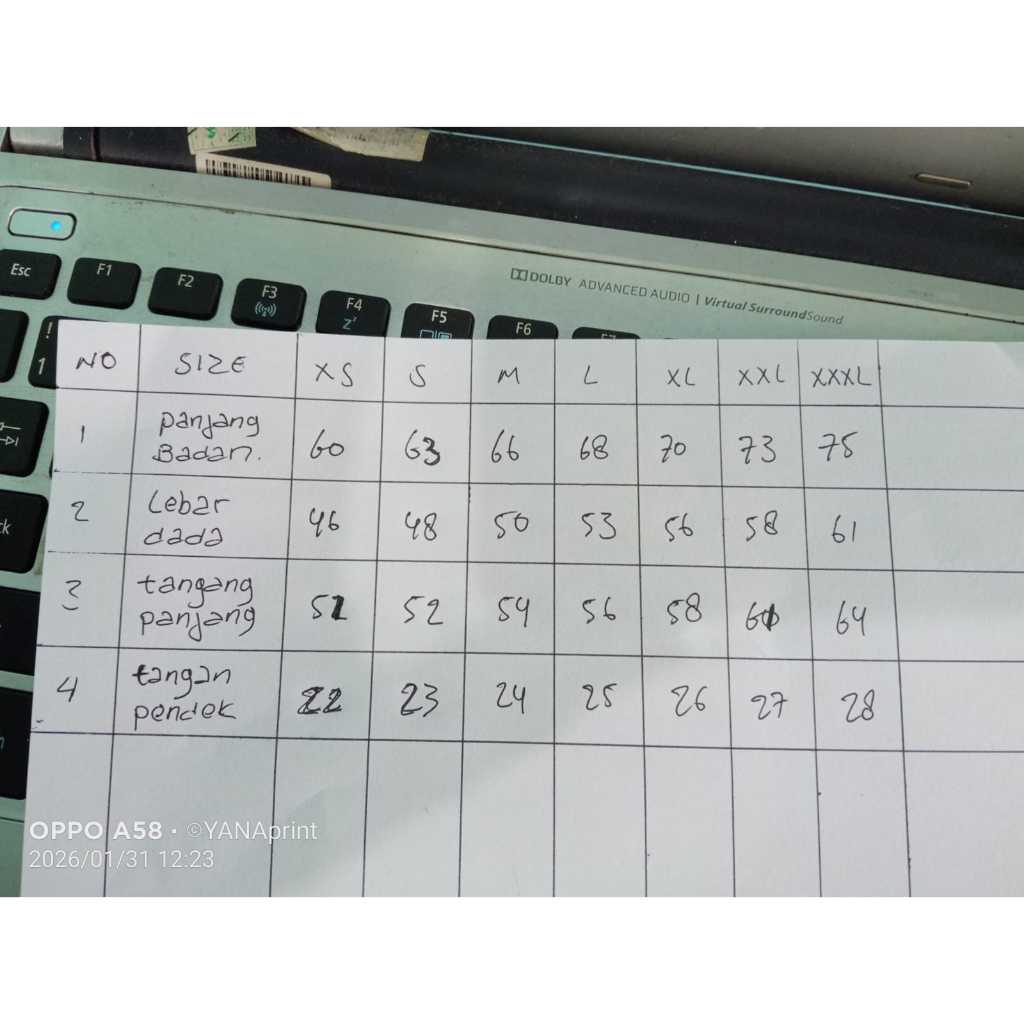 DOLBY ADVANCED AUDIO | Virtual SurroundSound
Esc F1 F2 F3 F4 F5 F6 F7
Z
!
1
NO SIZE XS S M L XL XXL XXXL
1 Panjang Badan. 60 63 66 68 70 73 75
2 Lebar dada 46 48 50 53 56 58 61
3 tangang panjang 51 52 54 56 58 61 64
4 tangan pendek 22 23 24 25 26 27 28
OPPO A58 · ©YANAprint
2026/01/31 12:23